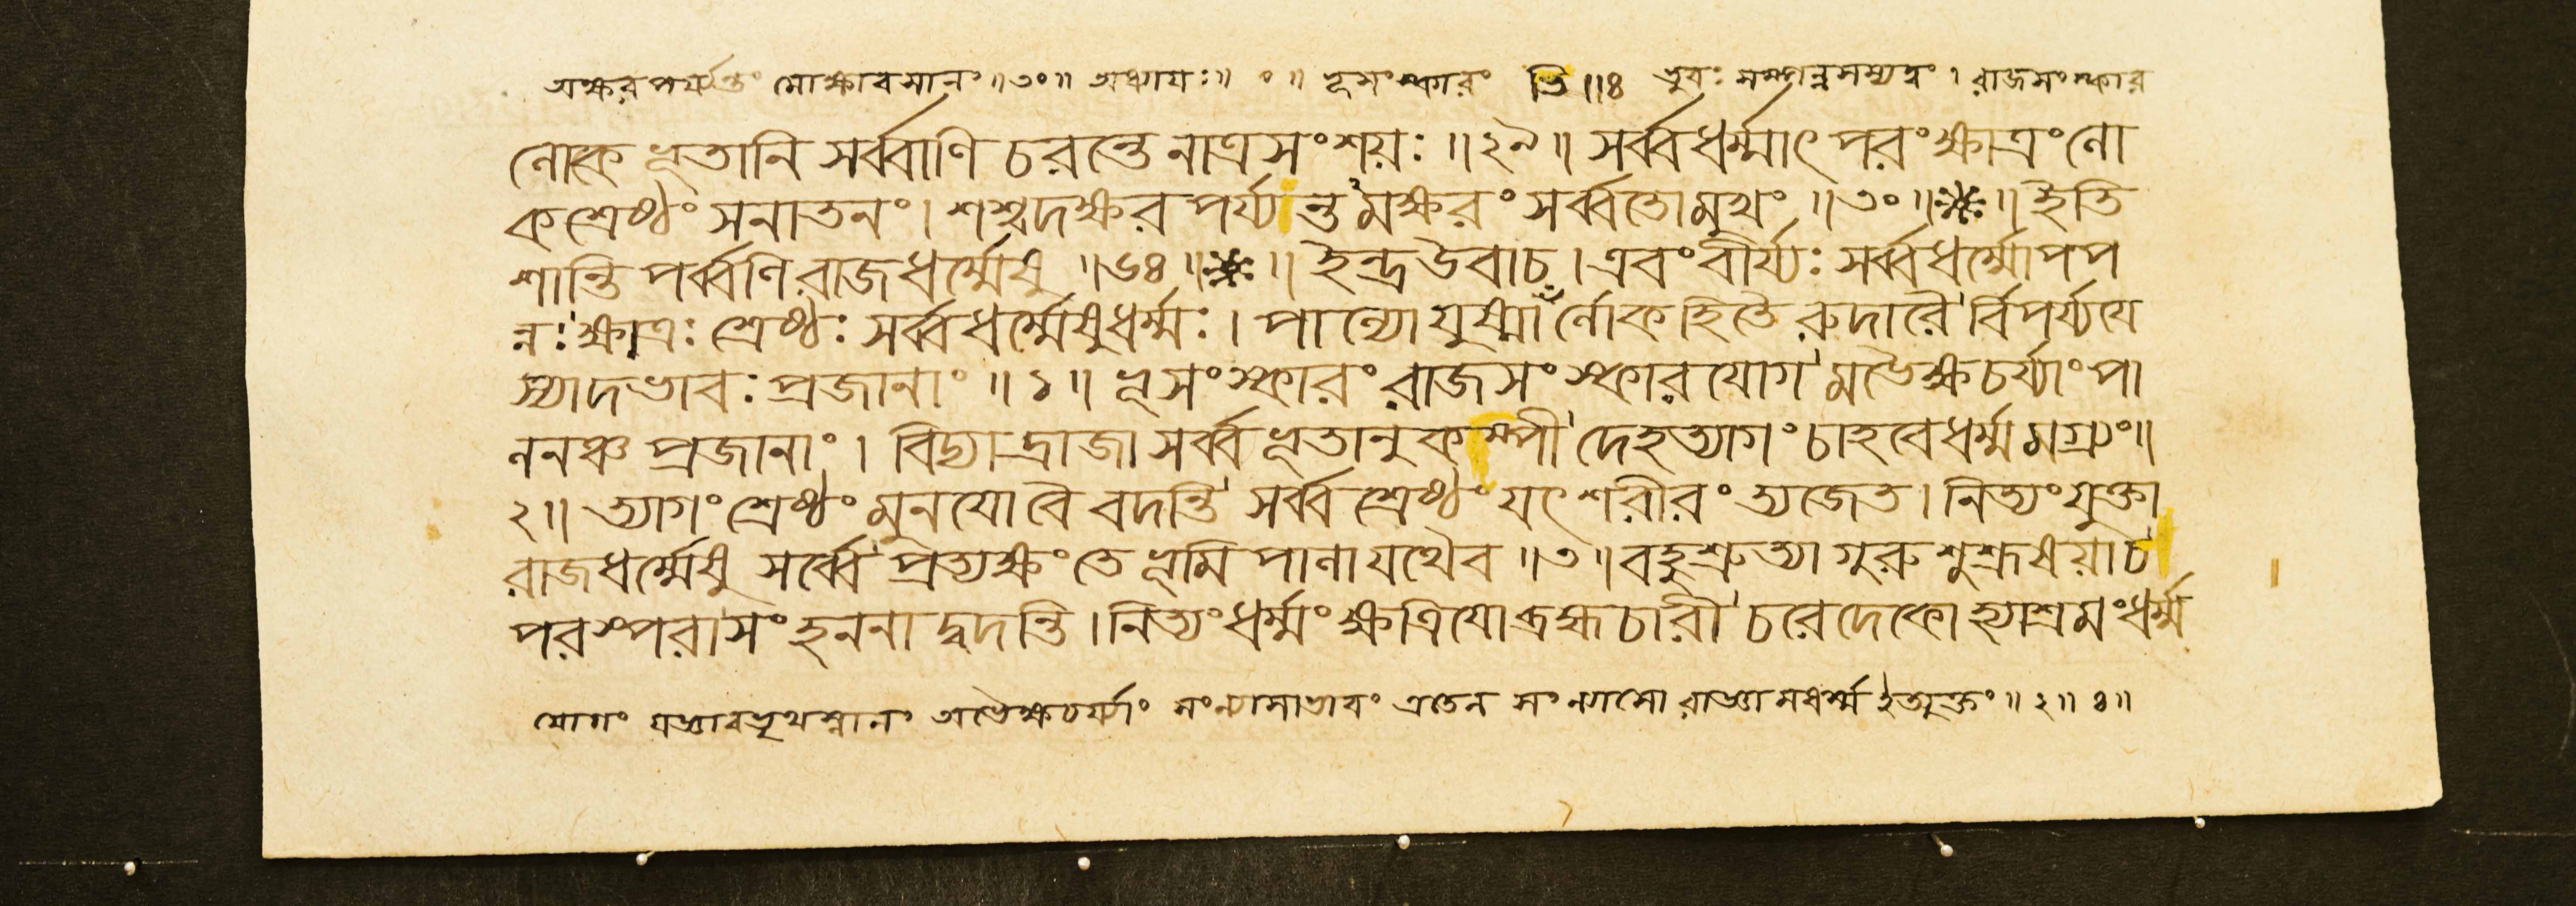 অক্ষরপর্য্যন্তং মোক্ষাবসানং ॥৩০॥ অধ্যায়ঃ॥ ০ ॥ ভূসংস্কারং তি ॥৪ ভুবঃ সম্পন্নসস্যত্বং। রাজসংস্কার
লোকে ভূতানি সর্ব্বাণি চরন্তে নাত্রসংশয়ঃ ॥২৯॥ সর্ব্বধর্ম্মাৎ পরং ক্ষাত্রং লো
কশ্রেষ্ঠং সনাতনং। শশ্বদক্ষর পর্য্যন্ত মক্ষরং সর্ব্বতোমুখং ॥৩০॥※॥ ইতি
শান্তি পর্ব্বণি রাজধর্ম্মেষু ॥৬৪॥※॥ ইন্দ্র উবাচ। এবংবীর্য্যঃ সর্ব্বধর্ম্মোপপ
ন্নঃ ক্ষাত্রঃ শ্রেষ্ঠঃ সর্ব্বধর্ম্মেষুধর্ম্মঃ। পাল্যো যুষ্মাঁর্লোকহিতৈ রুদারৈ র্বিপর্য্যযে
স্যাদভাবঃ প্রজানাং ॥১॥ ভূসংস্কারং রাজসংস্কারযোগ মভৈক্ষচর্য্যাং পা
লনঞ্চ প্রজানাং। বিদ্যাদ্রাজা সর্ব্বভূতানুকম্পী দেহত্যাগং চাহবে ধর্ম্মমগ্র্যং॥
২॥ ত্যাগং শ্রেষ্ঠং মুনযো বৈ বদন্তি সর্ব্বশ্রেষ্ঠং যৎ শরীরং ত্যজেত। নিত্যং যুক্তা
রাজধর্ম্মেষু সর্ব্বে প্রত্যক্ষং তে ভূমিপালা যথৈব ॥৩॥ বহুশ্রুত্যা গুরুশুশ্রূষয়া চ
পরস্পরাসংহননা দ্বদন্তি। নিত্যং ধর্ম্মং ক্ষত্রিযো ব্রহ্মচারী চরেদেকো হ্যাশ্রমং ধর্ম্ম
যোগং যজ্ঞাবভৃথস্নানং অভৈক্ষচর্য্যাং সংন্যাসাভাবং এতেন সংন্যাসো রাজ্ঞামধর্ম্ম ইত্যুক্তং ॥২॥ ৪॥